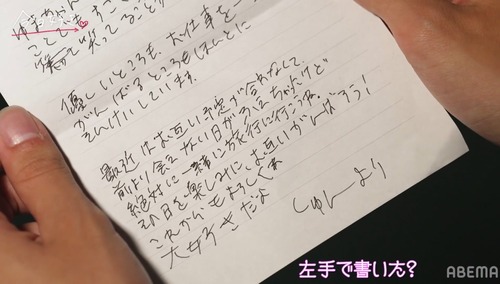 笑って笑ってること
優しいところも、お仕事を一
がんばるところもほんとに
そんけいしています。
最近はお互い予定が合わなくて、
前より会えない日があってちがたけど
絶対に一緒に旅行に行こうね
その日を楽しみに、お互いがんばろう!
これからもよろしくね
大好きだよ
しゅんより
左手で書いた?
ABEMA